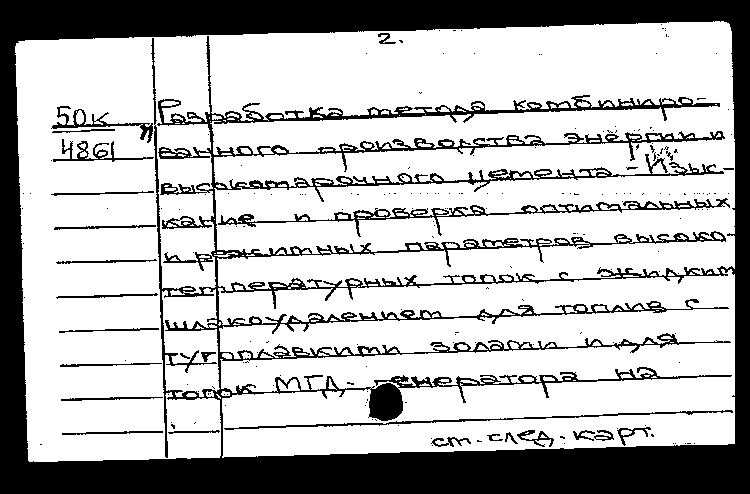 2.
50к
4861
" Разработка метода комбиниро-
ванного производства энергии и
высокомарочного цемента - Изыс-
кание и проверка оптимальных
и режимных параметров высоко-
температурных топок с жидким
шлакоудалением для топлив с
тугоплавкими золами и для
топок МГД-генератора на
см. след. карт.